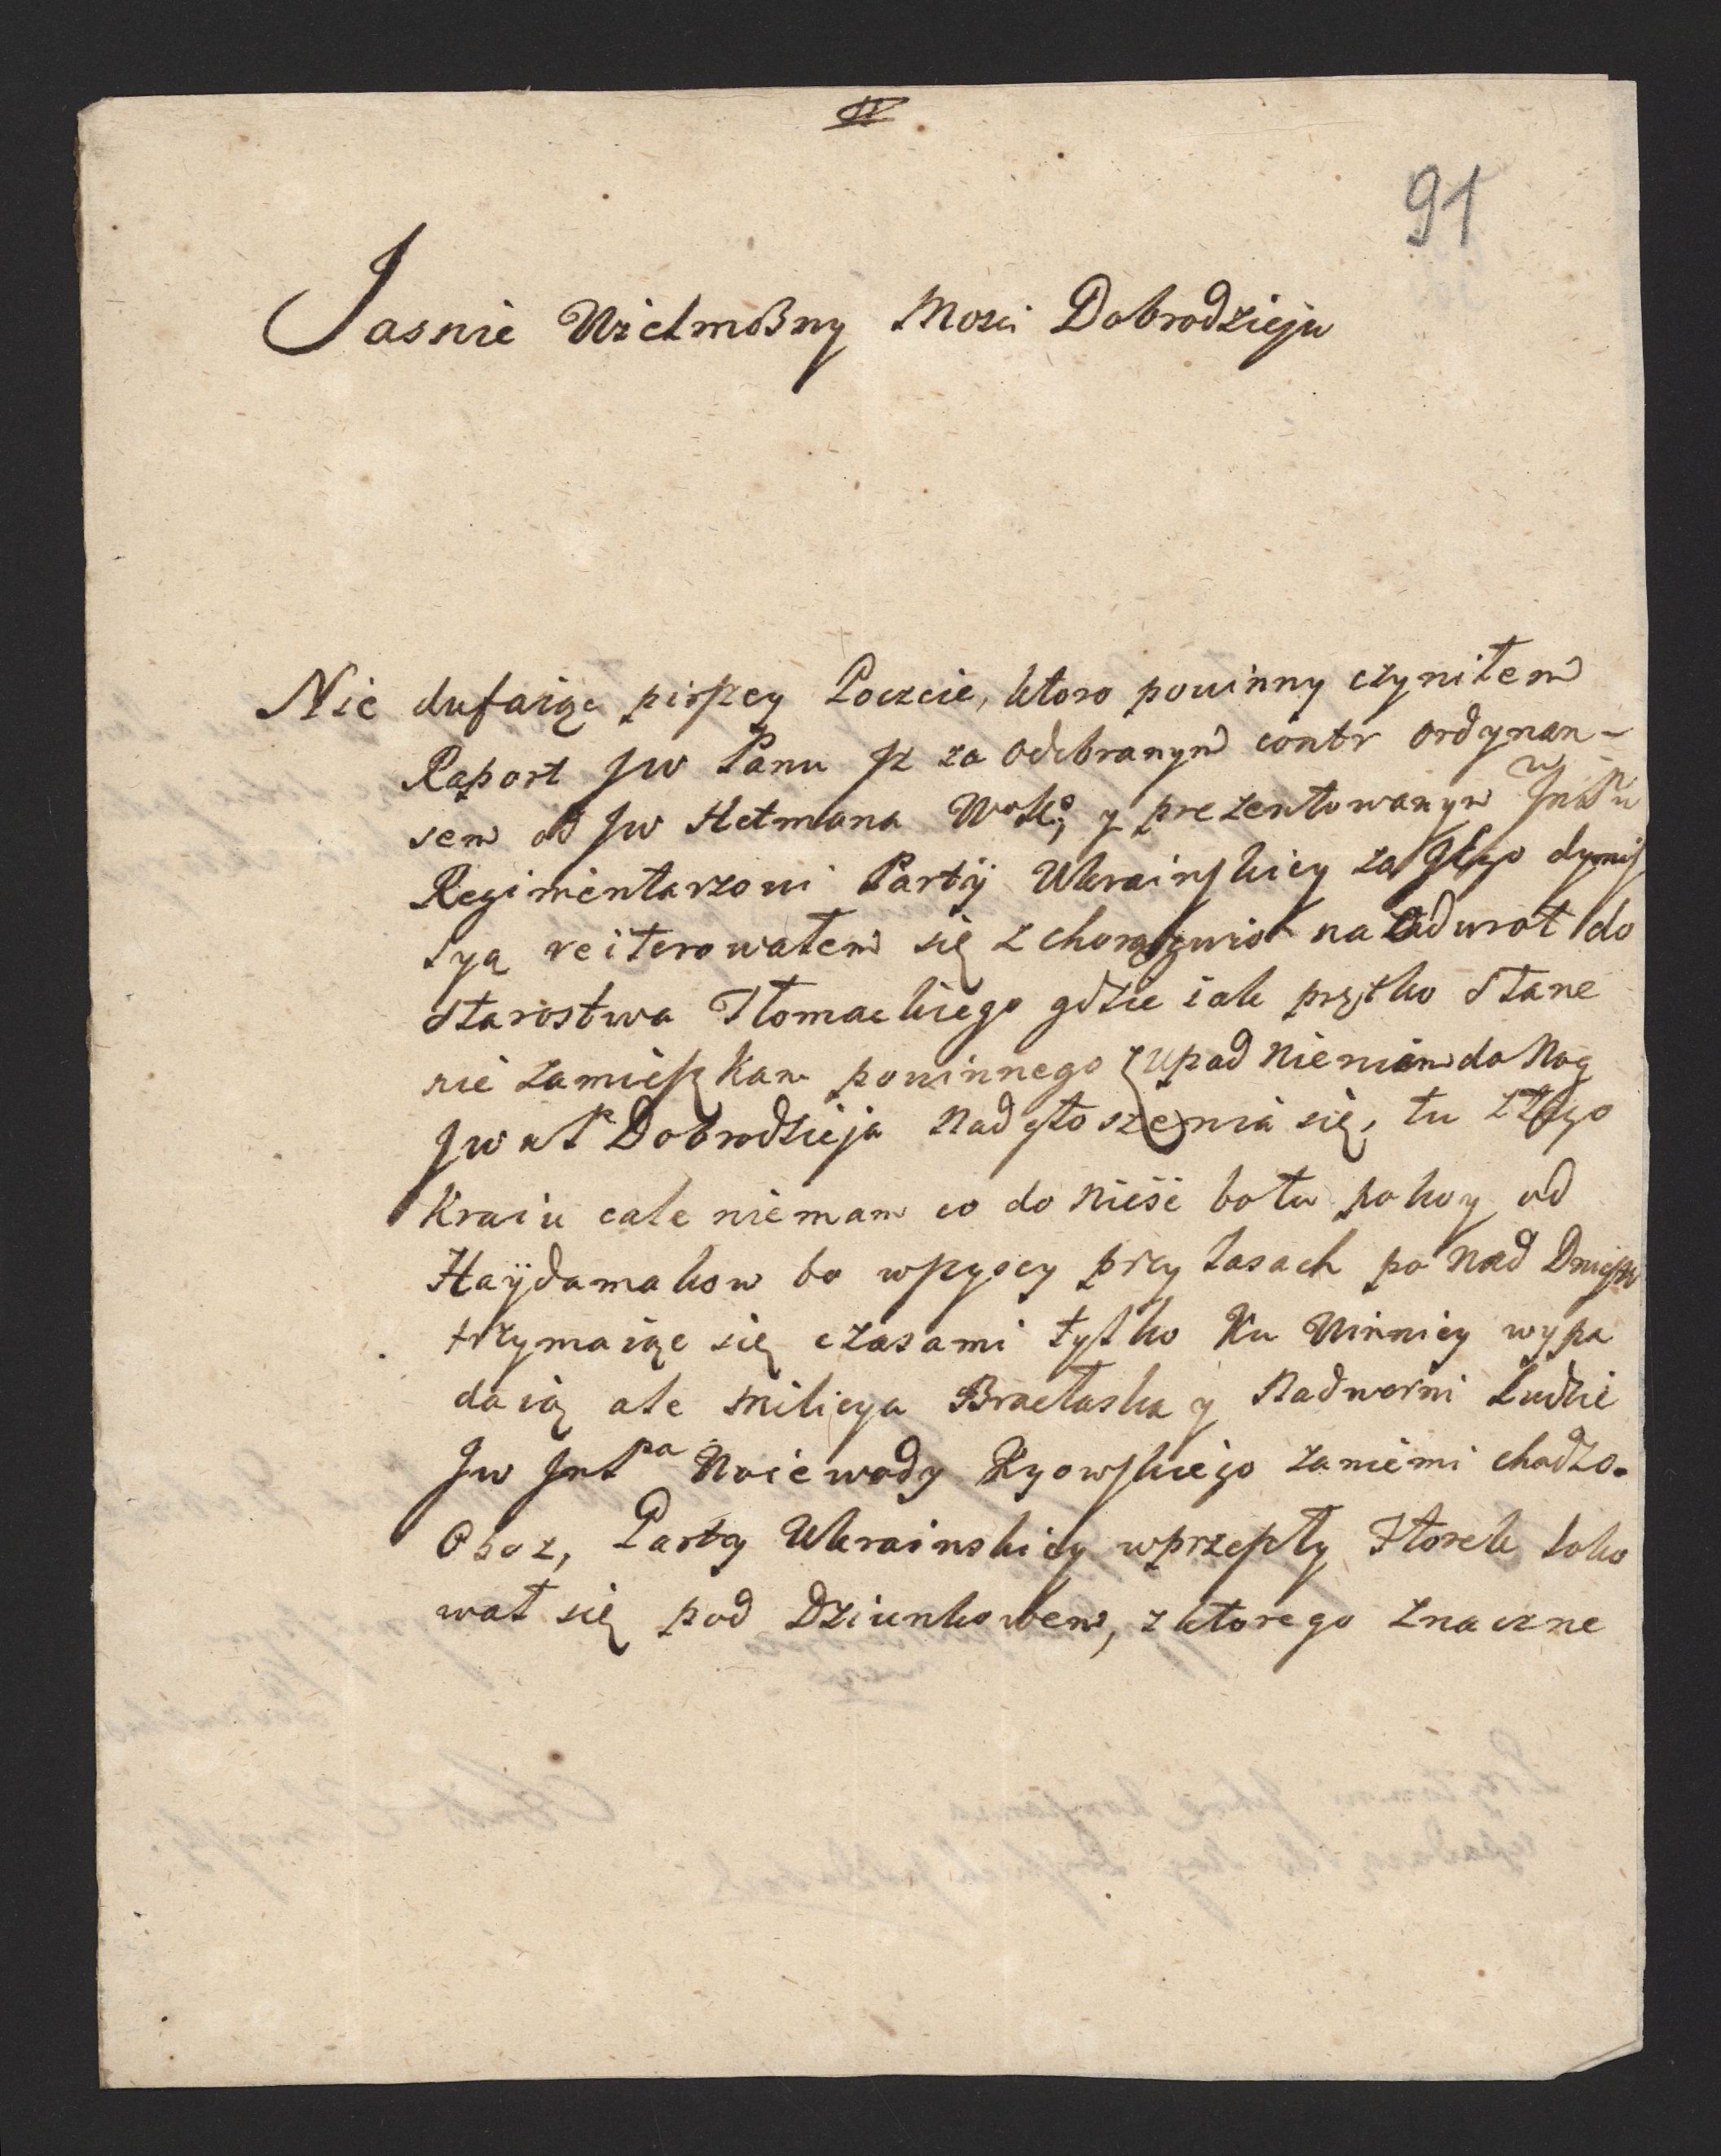 91
Jasnie Wielmożny Mosci Dobrodzieju
Nie dufaiąc pirszey Poczcie, ktoro powinny czyniłem
Raport Jw Panu isz za odebranym contr ordynan-
sem od Jw Hetmana Wo Ko, y prezentowanym
Regimentarzowi Partÿ Ukrainskiey za Jego dymis
syą reiterowałem się z chorągwio na odwrot do
Starostwa Tłomackiego gdzie iak prętko stane
nie zamieszkam powinnego upadnieniem do Nog
Jw Dobrodzieja nadgłoszenia się, tu z tego
Kraiu cale niemam co donieść bo tu pokoy od
Haÿdamakow bo wszyscy przy lasach po nad Dniepr
trzymaiąc się czasami tylko Ku Winnicy wypa
daią ale milicya Bracłaska y Nadworni Ludzie
Jw Woiewody Kyowskiego za niemi chodzo.
Oboz, Party Ukrainskiey w przeszły Wtorek loko
wał się pod Dziunkowem, z ktorego znaczne